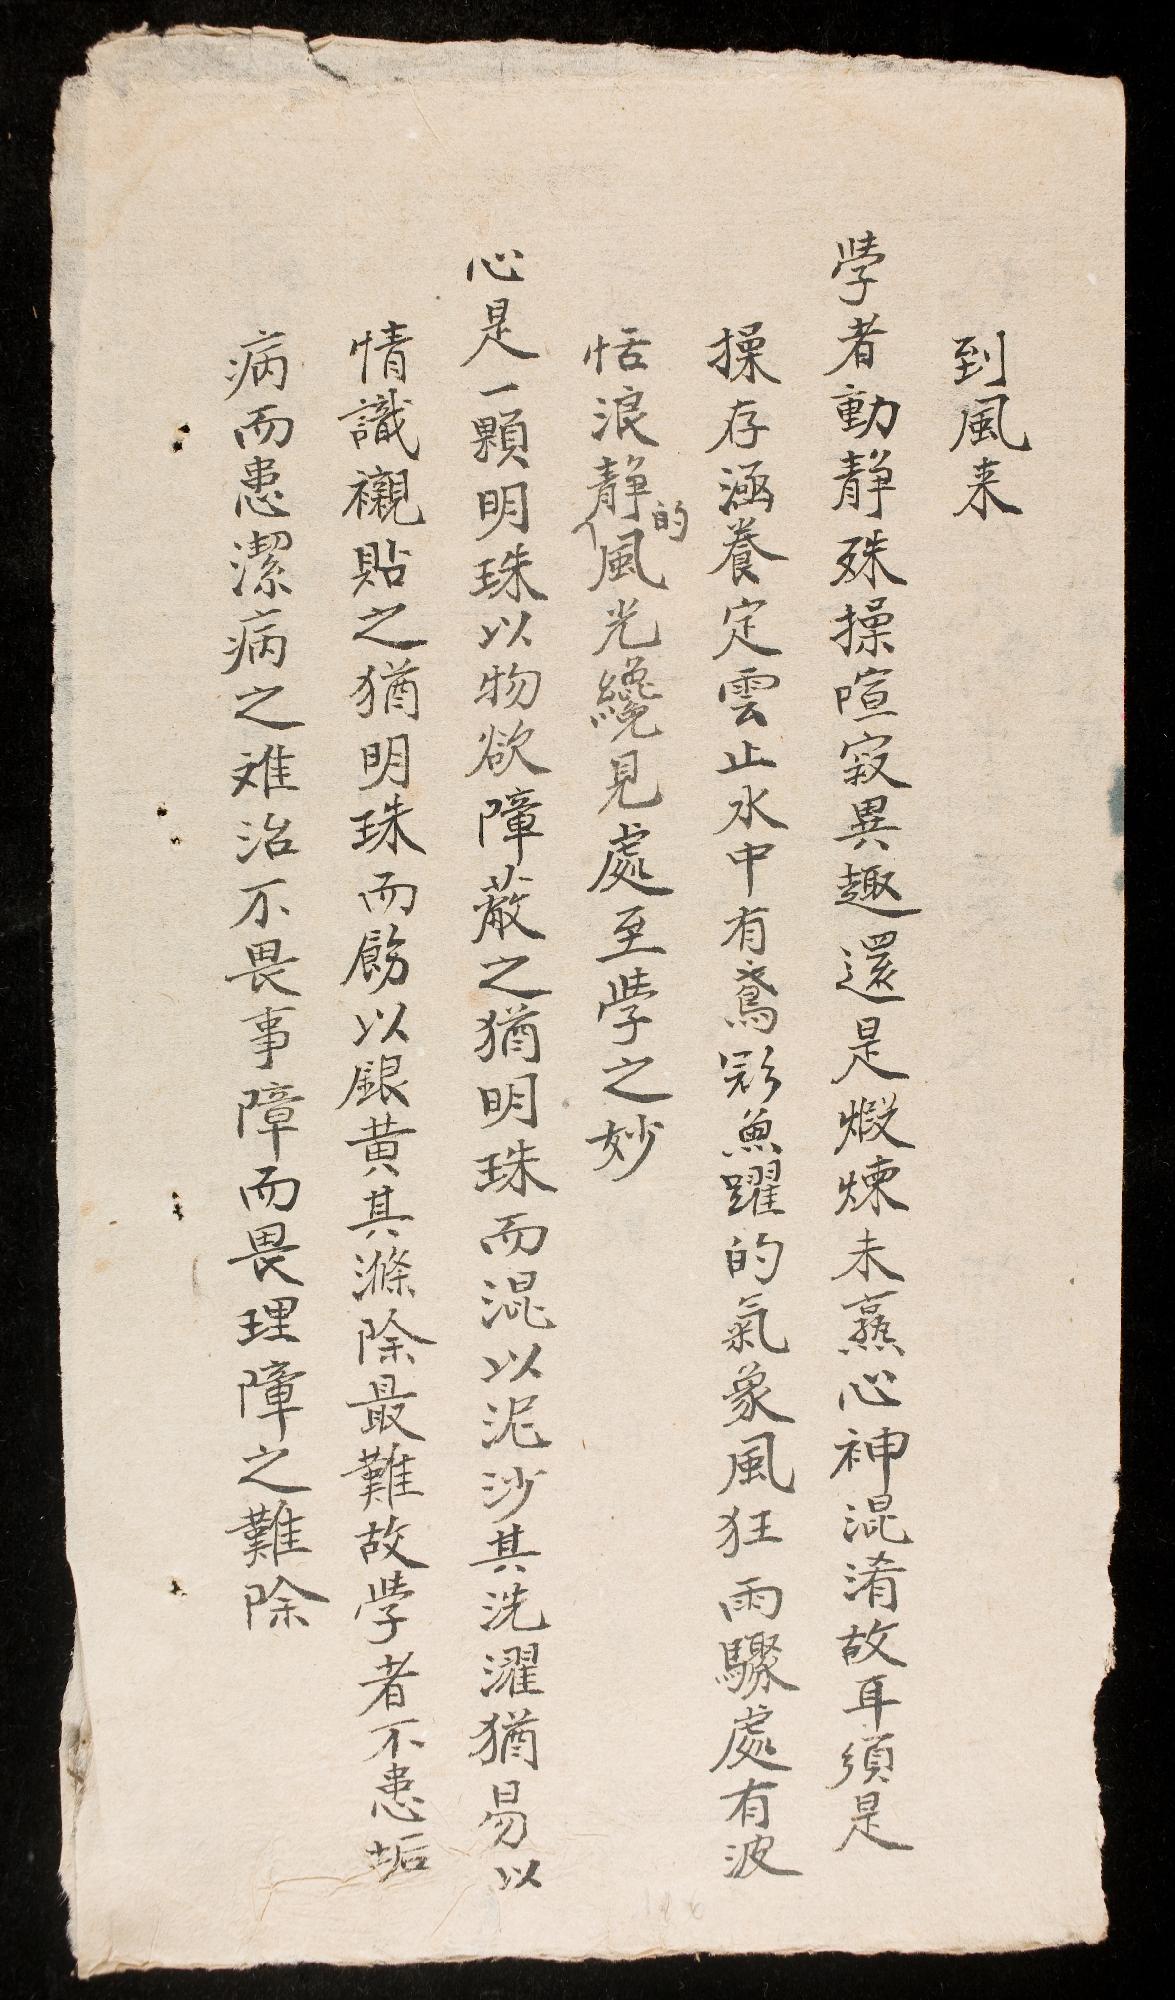 到風来
學者動静殊操喧寂異趣還是煅煉未熟心神混淆故耳須是
操存涵養定雲止水中有鳶飛魚躍的氣象風狂雨驟處有波
恬浪静的風光纔見處至學之妙
心是一顆明珠以物欲障蔽之猶明珠而混以泥沙其洗濯猶易以
情識襯貼之猶明珠而飾以銀黄其滌除最難故學者不患垢
病而患潔病之难治不畏事障而畏理障之難除